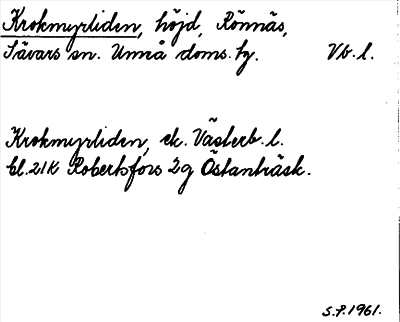 Krokmyrliden, höjd, Rönnäs,
Sävars sn. Umeå doms. tg. Vb. l.
Krokmyrliden, ek. Västerb. l.
bl. 21K Robertsfors 2g Östanträsk.
S.P. 1961.